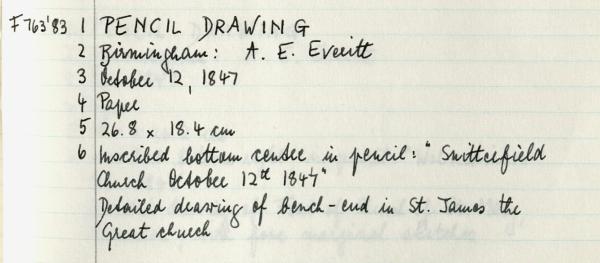 F763'83 1 PENCIL DRAWING
2 Birmingham: A. E. Everitt
3 October 12, 1847
4 Paper
5 26.8 x 18.4 cm
6 Inscribed bottom centre in pencil: "Snitterfield
Church October 12th 1847"
Detailed drawing of bench-end in St. James the
Great church